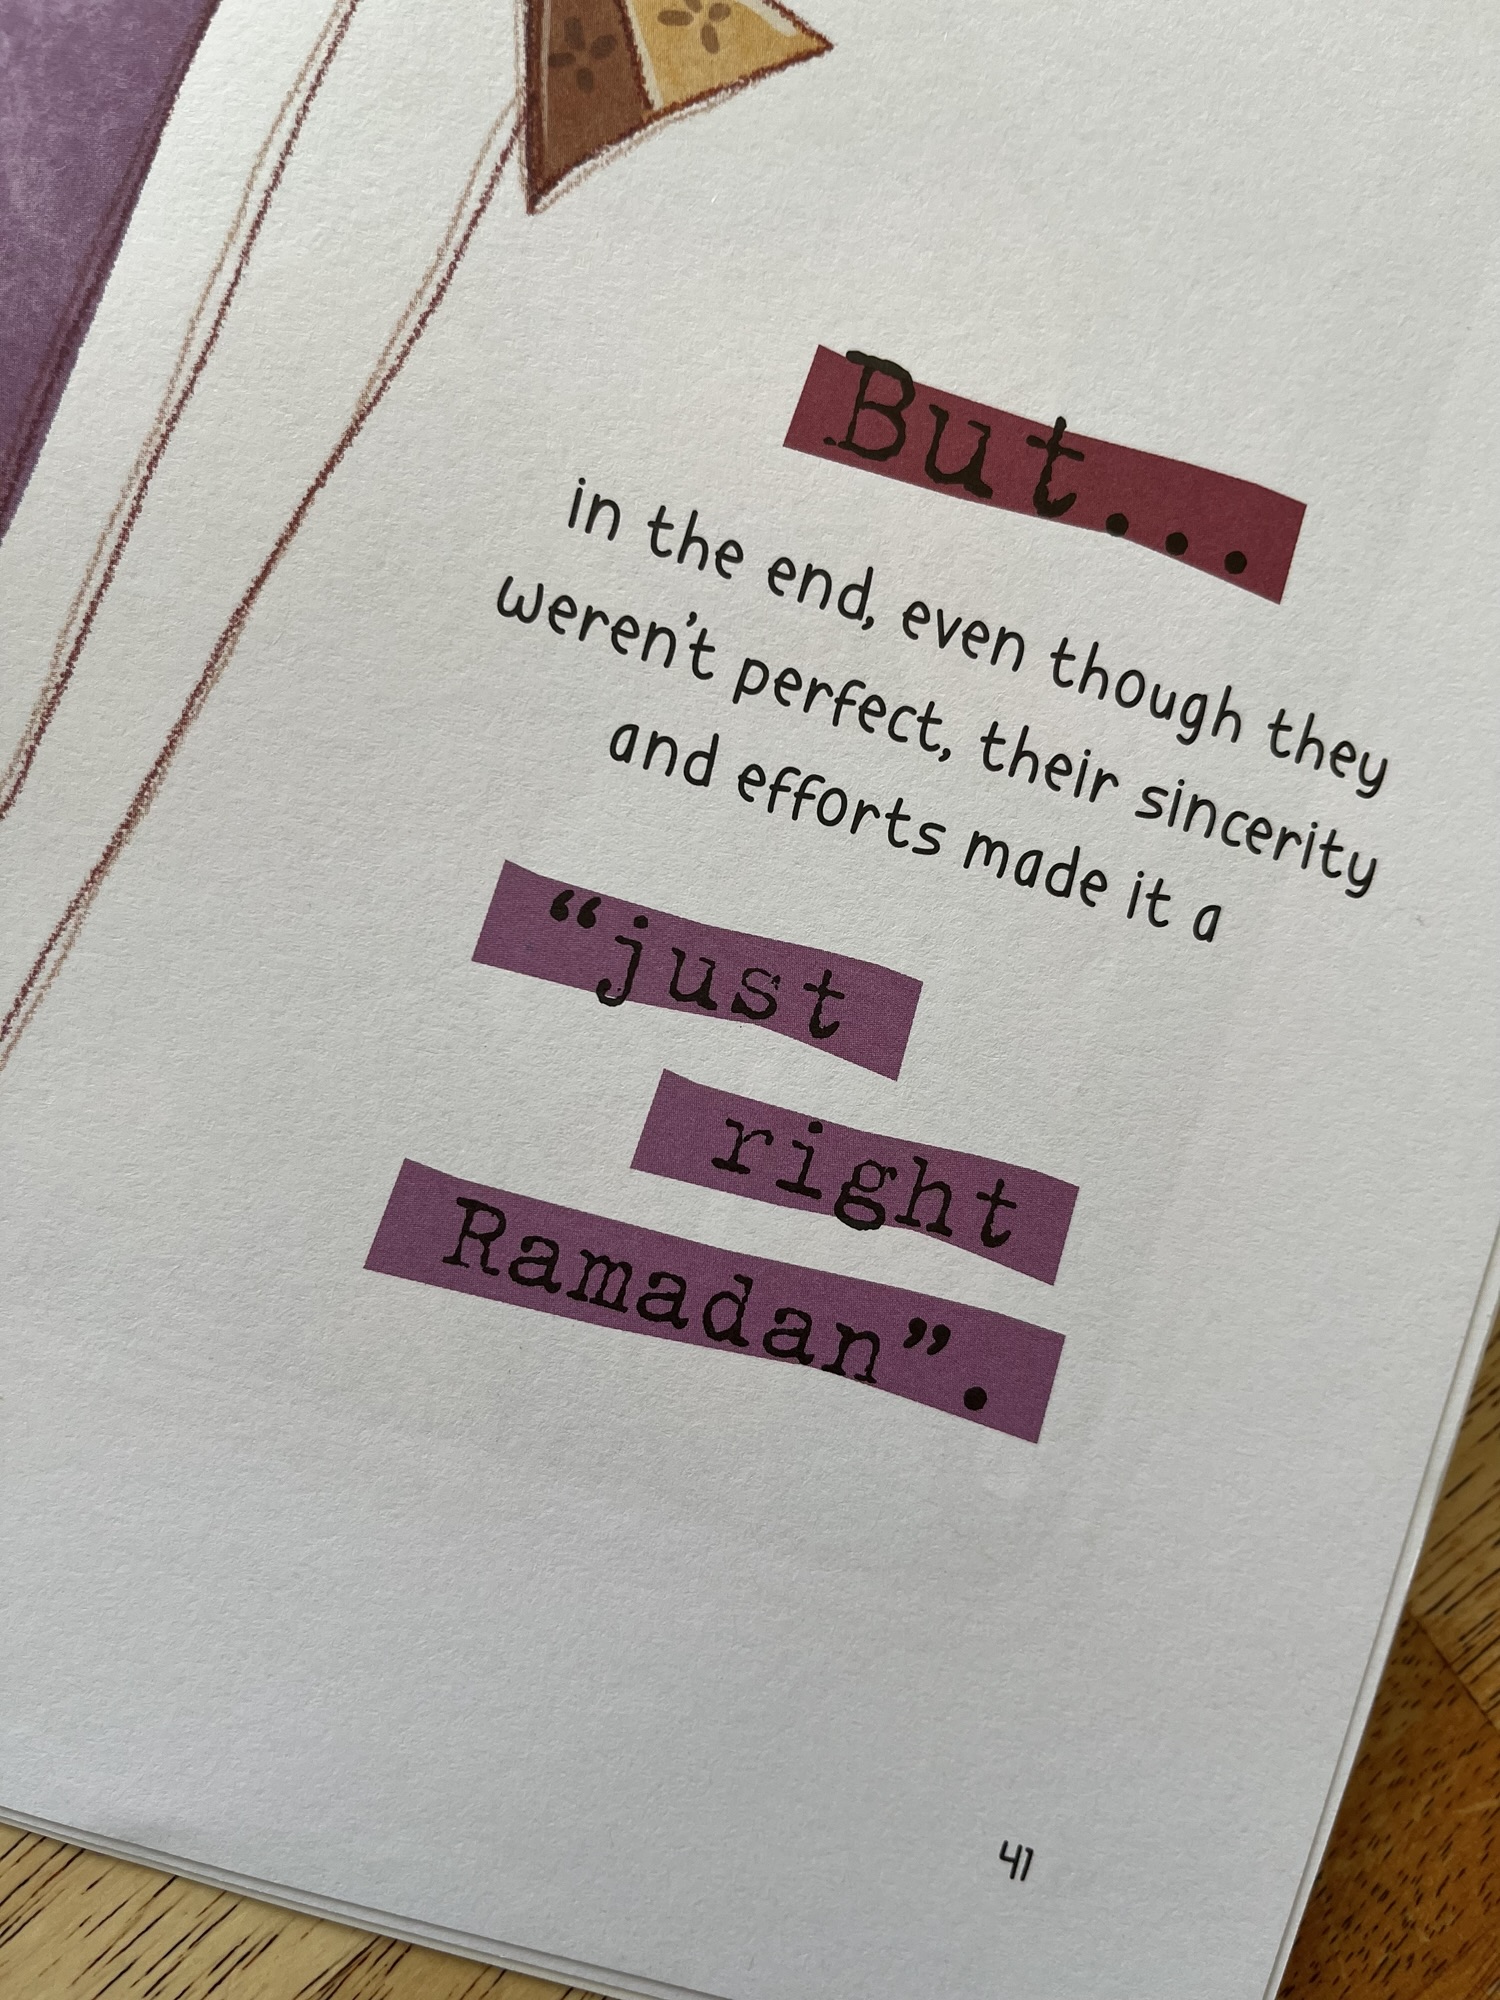 But...
in the end, even though they
weren't perfect, their sincerity
and efforts made it a
“just
right
Ramadan”.
41